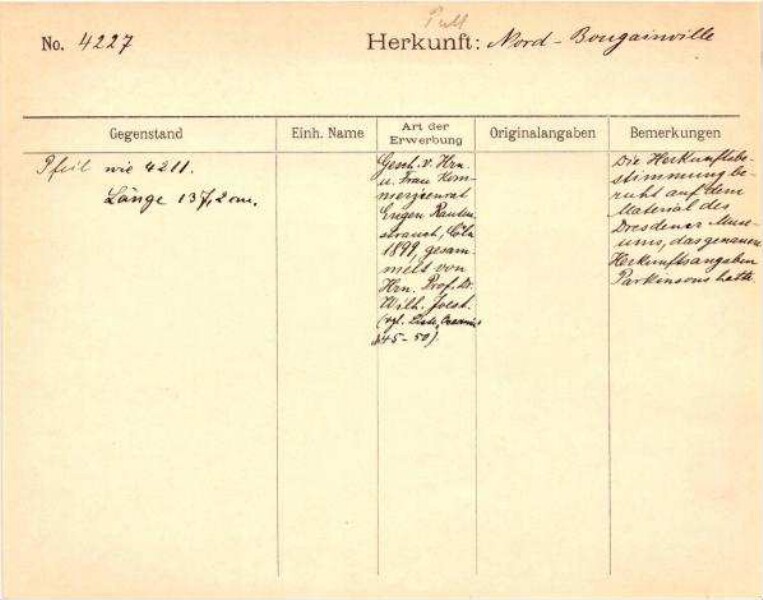 No. 4227
Herkunft: Nord-Bougainville
Gegenstand
Einh. Name
Art der
Erwerbung
Originalangaben
Bemerkungen
Pfeil wie 4211.
Länge 137,2 cm.
Gesch. v. Hrn.
u. Frau Kom-
merzienrat
Eugen Rauten-
strauch, Cöln
1899, gesam-
melt von
Hrn. Prof. Dr.
Wilh. Joest.
(vgl. Liste
45-50).
Die Herkunftsbe-
stimmung be-
ruht auf dem
Material des
Dresdener Muse-
ums, das genauere
Herkunftsangaben
Parkinsons hatte.